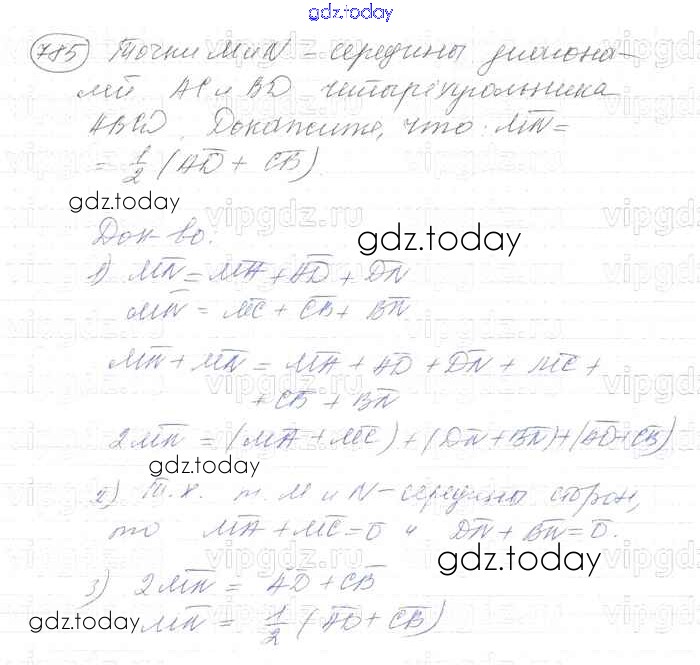 gdz.today
785 Точки M и N – середины диагона-
лей AC и BD четырёхугольника
ABCD. Докажите, что: MN̅ =
= 1/2 (AD̅ + CB̅)
gdz.today
vipgdz.ru
Док-во:
gdz.today
1) MN̅ = MA̅ + AD̅ + DN̅
MN̅ = MC̅ + CB̅ + BN̅
MN̅ + MN̅ = MA̅ + AD̅ + DN̅ + MC̅ +
+ CB̅ + BN̅
2MN̅ = (MA̅ + MC̅) + (DN̅ + BN̅) + (AD̅ + CB̅)
gdz.today
2) Т.к. т. M и N – середины сторон,
то MA̅ + MC̅ = 0̅ и DN̅ + BN̅ = 0̅.
gdz.today
3) 2MN̅ = AD̅ + CB̅
gdz.today
MN̅ = 1/2 (AD̅ + CB̅)